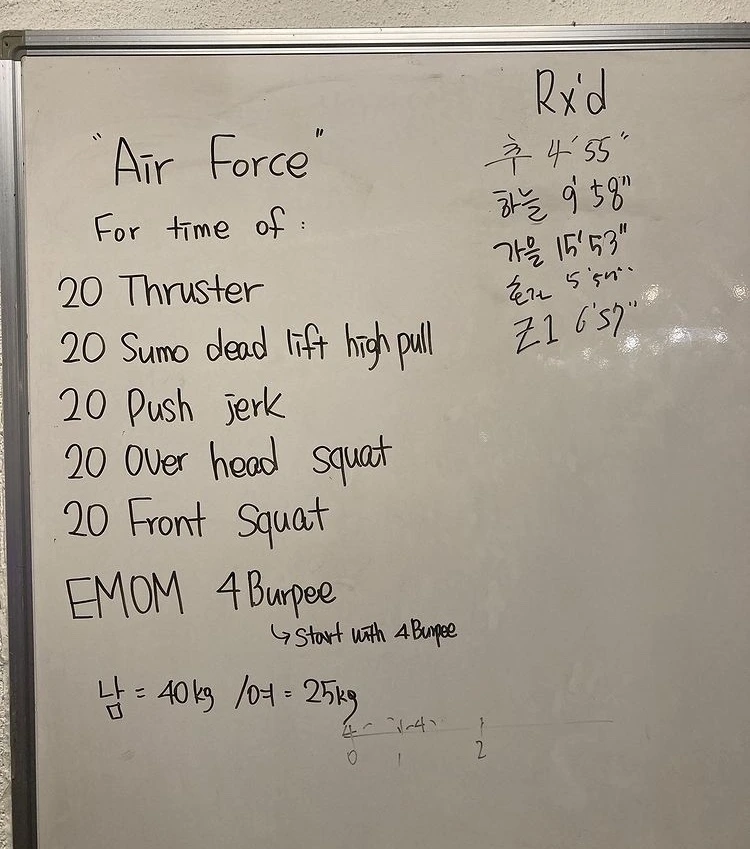 "Air Force"
For time of :
20 Thruster
20 Sumo dead lift high pull
20 Push jerk
20 Over head squat
20 Front Squat
EMOM 4 Burpee
↳ Start with 4 Burpee
남 = 40kg /여 = 25kg
4 4
0 1 2
Rx'd
추 4'55"
하늘 9'58"
가을 15'53"
Z1 6'57"